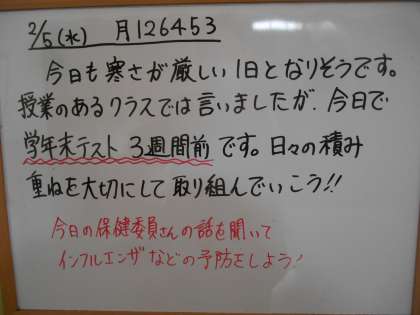 2/5(水) 月126453
今日も寒さが厳しい1日となりそうです。
授業のあるクラスでは言いましたが、今日で
学年末テスト3週間前です。日々の積み
重ねを大切にして取り組んでいこう!!
今日の保健委員さんの話を聞いて
インフルエンザなどの予防をしよう!